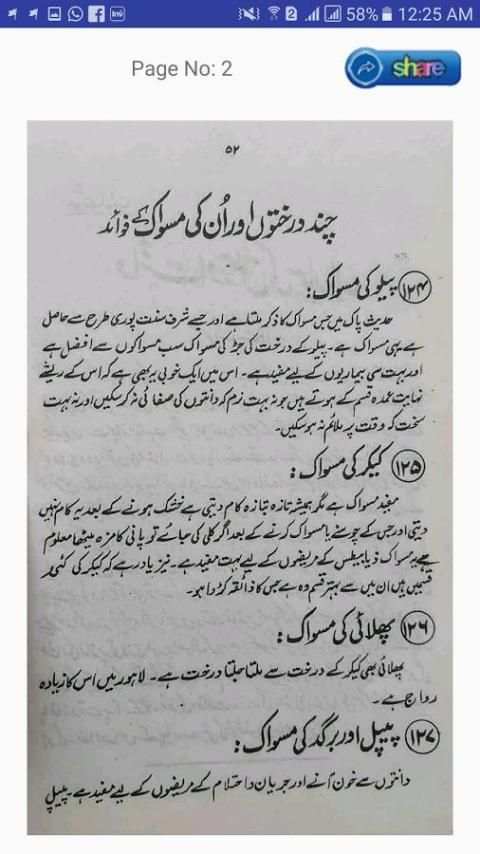 58% 12:25 AM
Page No: 2
share
۵۲
چند درختوں اور اُن کی مسواک کے فوائد
۱۲۴ پیلو کی مسواک:
حدیث پاک میں جس مسواک کا ذکر ملتا ہے اور جسے شرف سنت پوری طرح سے حاصل
ہے یہی مسواک ہے۔ پیلو کے درخت کی جڑ کی مسواک سب مسواکوں سے افضل ہے
اور بہت سی بیماریوں کے لیے مفید ہے۔ اس میں ایک خوبی یہ بھی ہے کہ اس کے ریشے
نہایت عمدہ قسم کے ہوتے ہیں جو نہ بہت نرم کہ دانتوں کی صفائی نہ کر سکیں اور نہ بہت
سخت کہ وقت پر ملائم نہ ہو سکیں۔
۱۲۵ کیکر کی مسواک:
مفید مسواک ہے مگر ہمیشہ تازہ بتازہ کام دیتی ہے خشک ہونے کے بعد یہ کام نہیں
دیتی اور جس کے چوسنے یا مسواک کرنے کے بعد اگر کلی کی جائے تو پانی کا مزہ میٹھا معلوم
ہو یہ مسواک ذیابیطس کے مریضوں کے لیے بہت مفید ہے۔ نیز یاد رہے کہ کیکر کی کئی
قسمیں ہیں ان میں سے بہتر قسم وہ ہے جس کا ذائقہ کڑوا ہو۔
۱۲۶ پھلائی کی مسواک:
پھلائی بھی کیکر کے درخت سے ملتا جلتا درخت ہے۔ لاہور میں اس کا زیادہ
رواج ہے۔
۱۲۷ پیپل اور برگد کی مسواک:
دانتوں سے خون آنے اور جریان و احتلام کے مریضوں کے لیے مفید ہے۔ پیپل